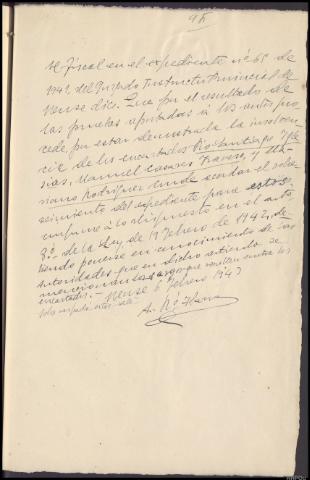 El Fiscal en el expediente nº 65 de
1942 del Juzgado Instructor Provincial de
Orense dice: Que por el resultado de
las pruebas aportadas a los autos pro-
cede por estar demostrada la insolven-
cia de los encartados
Manuel Casares y
Rodriguez donde acordar el sobre-
seimiento del expediente para estos
conforme a lo dispuesto en el arto
8º de la Ley de 19 Febrero de 1942, de-
biendo ponerse en conocimiento de las
autoridades que en dicho articulo se
mencionan los cargos que resultan contra los
encartados. - Orense 6 Febrero 1943
A.